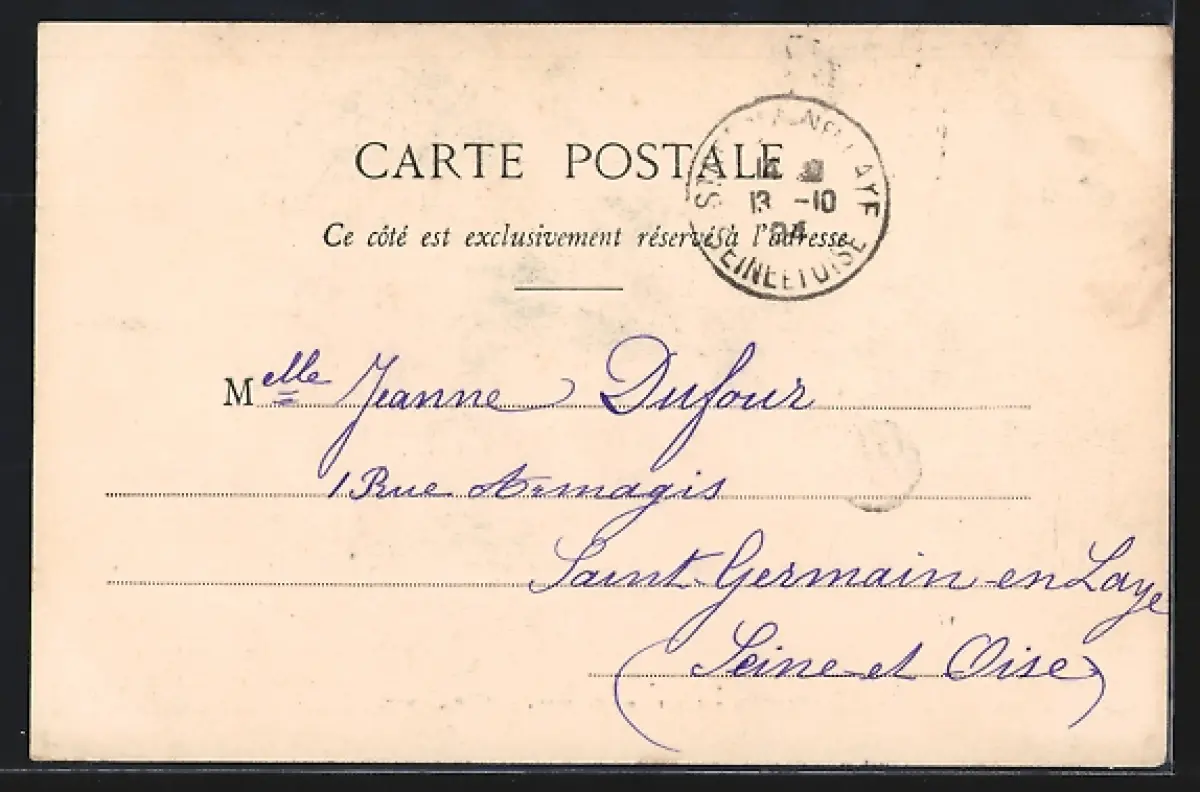 CARTE POSTALE
Ce côté est exclusivement réservé à l'adresse
13 -10
04
SEINE ET OISE
Melle Jeanne Dufour
1 Rue Armagis
Saint-Germain-en Laye
(Seine-et Oise)